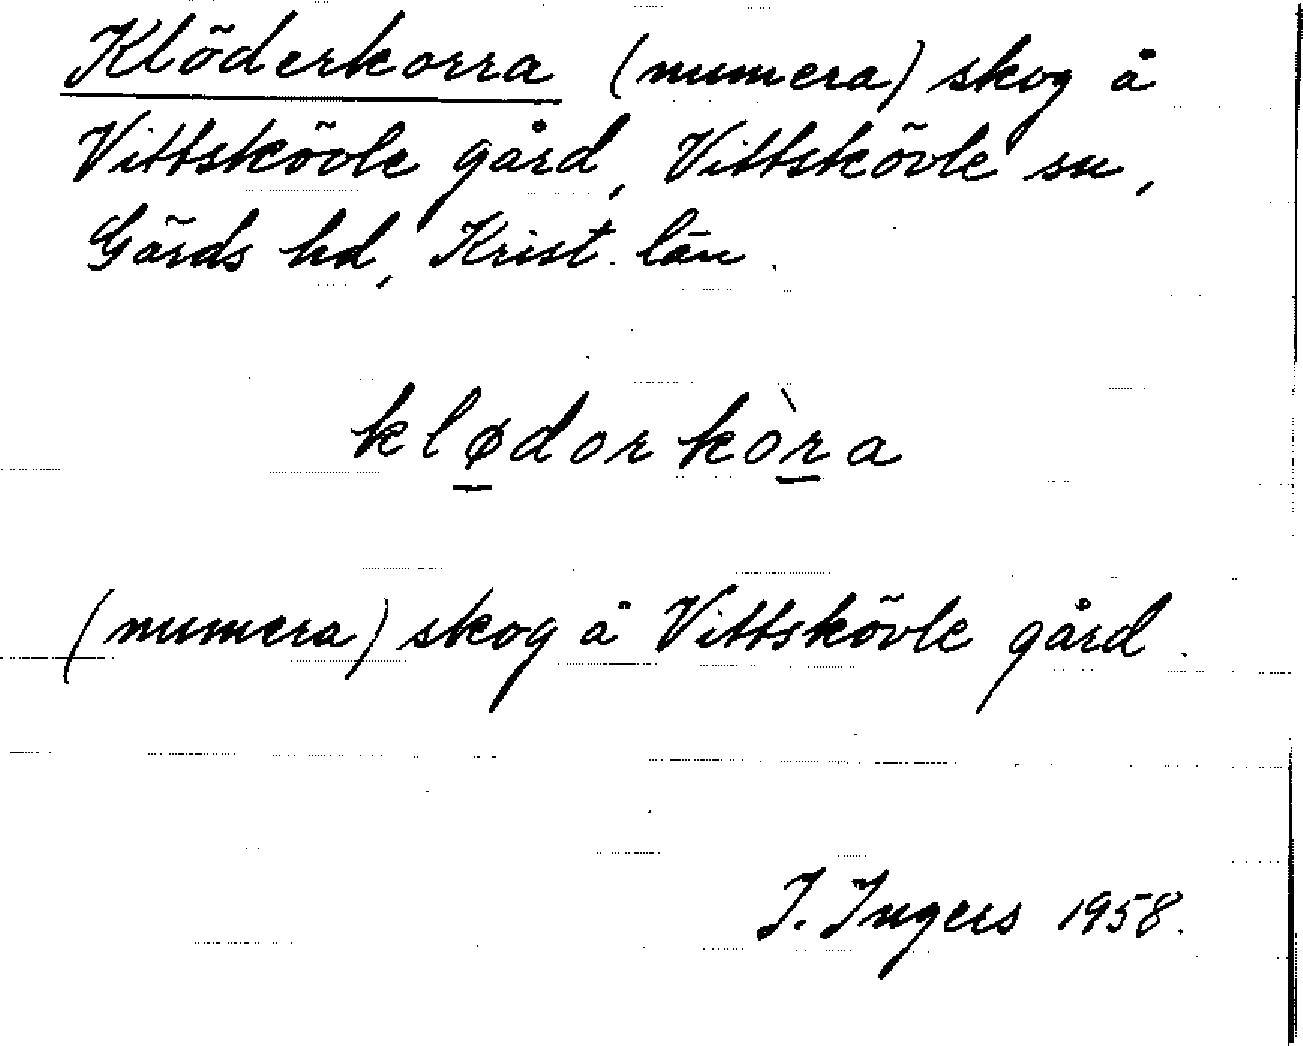 Klöderkorra (numera) skog å
Vittskövle gård, Vittskövle sn,
Gärds hd, Krist. län.
klødorkòra
(numera) skog å Vittskövle gård.
I. Ingers 1958.